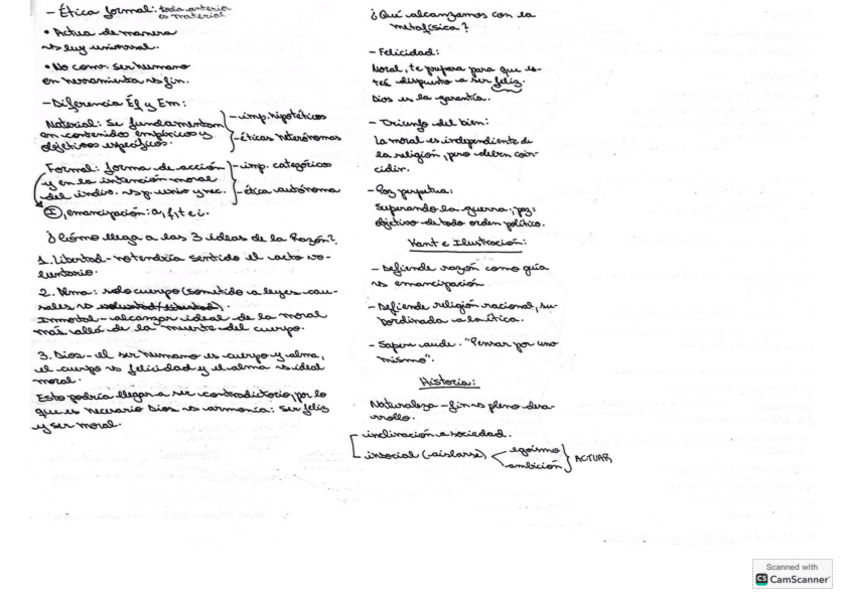 - Ética formal: toda anterior es material
• Actua de manera
→ ley universal.
• No conv. ser humano
en herramienta → fin.
- Diferencia Éf y Em:
Material: se fundamentan
en contenidos empíricos y
objetivos específicos.
- imp. hipotéticos
- éticas heterónomas
Formal: forma de acción
y en la intención moral
del indiv. → p. univ y nec.
- imp. categóricos
- ética autónoma
I, emancipación: a, f, t e i.
¿Cómo llega a las 3 ideas de la Razón?
1. Libertad - no tendría sentido el acto vo-
luntario.
2. Alma: solo cuerpo (sometido a leyes cau-
sales → voluntad/libertad).
Inmortal - alcanzar ideal de la moral
más allá de la muerte del cuerpo.
3. Dios - el ser humano es cuerpo y alma,
el cuerpo → felicidad y el alma → ideal
moral.
Esto podría llegar a ser contradictorio, por lo
que es necesario Dios → armonía: ser feliz
y ser moral.
¿Qué alcanzamos con la
metafísica?
- Felicidad:
Moral, te prepara para que es-
tés dispuesto a ser feliz.
Dios es la garantía.
- Triunfo del bien:
La moral es independiente de
la religión, pero deben coin-
cidir.
- Paz perpetua:
Superando la guerra, paz:
objetivo de todo orden político.
Kant e Ilustración:
- Defiende razón como guía
→ emancipación
- Defiende religión racional, su-
bordinada a la ética.
- Sapere aude. "Pensar por uno
mismo".
Historia:
Naturaleza - fin → pleno desa-
rrollo.
inclinación a sociedad.
insocial (-aislarse) egoísmo
ambición ACTUAR
Scanned with
CS CamScanner